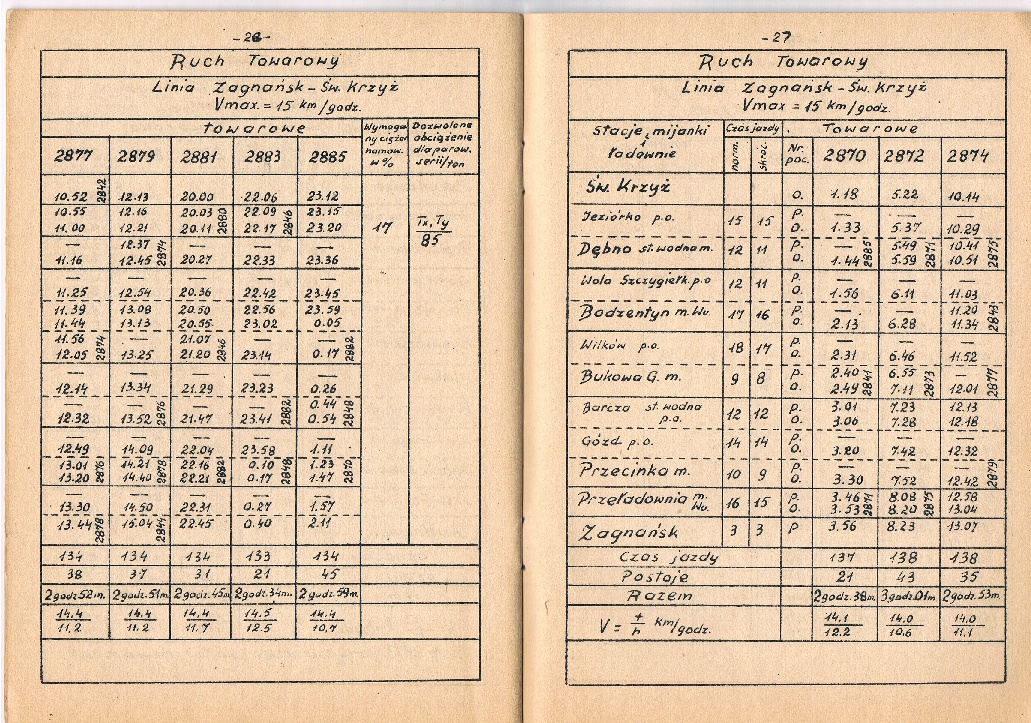 - 26 -
Ruch Towarowy
Linia Zagnańsk - Św. Krzyż
Vmax. = 15 km/godz.
towarowe
Wymaga
ny ciężar
hamow.
w %
Dozwolone
obciążenie
dla parow.
serii/ton
2877 2879 2881 2883 2885
10.52 2842 12.13 20.00 22.06 23.12
10.55 12.16 20.03 22.09 23.15
11.00 12.21 20.11 2880 22.17 2846 23.20 17 Tx, Ty
85
— 12.37 — — —
11.16 12.45 2874 20.27 22.33 23.36
— — — — —
11.25 12.54 20.36 22.42 23.45
11.39 13.08 20.50 22.56 23.59
11.44 13.13 20.55 23.02 0.05
11.56 — 21.07 — —
12.05 2874 13.25 21.20 2846 23.14 0.17 2882
— — — — —
12.14 13.34 21.29 23.23 0.26
— — — — 0.44
12.32 13.52 2876 21.47 23.41 2882 0.54 2848
— — — — —
12.49 14.09 22.04 23.58 1.11
13.01 14.21 22.16 0.10 1.23
13.20 2876 14.40 2878 22.21 2882 0.17 2848 1.47 2870
— — — — —
13.30 14.50 22.31 0.27 1.57
13.44 2878 15.04 2844 22.45 0.40 2.11
134 134 134 133 134
38 37 31 21 45
2 godz. 52m. 2 godz. 51m. 2 godz. 45m. 2 godz. 34m. 2 godz. 59m.
14.4 14.4 14.4 14.5 14.4
11.2 11.2 11.7 12.5 10.7
- 27
Ruch Towarowy
Linia Zagnańsk - Św. Krzyż
Vmax. = 15 km/godz.
Stacje, mijanki
i ładownie
Czas jazdy
norm. skróc.
Nr.
poc.
Towarowe
2870 2872 2874
Św. Krzyż O. 1.18 5.22 10.14
Jeziórko p.o. 15 15 P. — — —
O. 1.33 5.37 10.29
Dębno st. wodna m. 12 11 P. — 5.49 10.41
O. 1.44 2885 5.59 2871 10.51 2875
Wola Szczygiełk. p.o 12 11 P. — — —
O. 1.56 6.11 11.03
Bodzentyn m. Wu. 17 16 P. — — 11.20
O. 2.13 6.28 11.34 2843
Wilków p.o. 18 17 P. — — —
O. 2.31 6.46 11.52
Bukowa G. m. 9 8 P. 2.40 6.55 —
O. 2.49 2841 7.11 2873 12.01 2877
Barcza st. wodna
p.o. 12 12 P. 3.01 7.23 12.13
O. 3.06 7.28 12.18
Gózd p.o. 14 14 P. — — —
O. 3.20 7.42 12.32
Przecinka m. 10 9 P. — — —
O. 3.30 7.52 12.42 2879
Przeładownia m.
Wu. 16 15 P. 3.46 8.08 12.58
O. 3.53 2871 8.20 2875 13.04
Zagnańsk 3 3 P 3.56 8.23 13.07
Czas jazdy 137 138 138
Postoje 21 43 35
Razem 2 godz. 38m. 3 godz. 01m. 2 godz. 53m.
V = t/h km/godz. 14.1 14.0 14.0
12.2 10.6 11.1